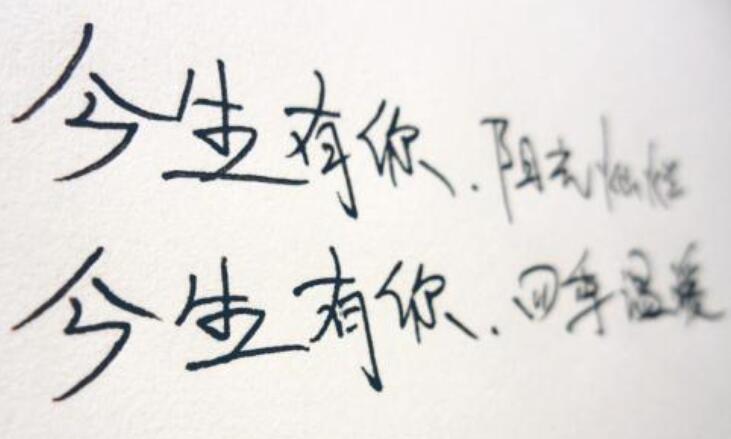 今生有你.阳光灿烂
今生有你.四季温暖